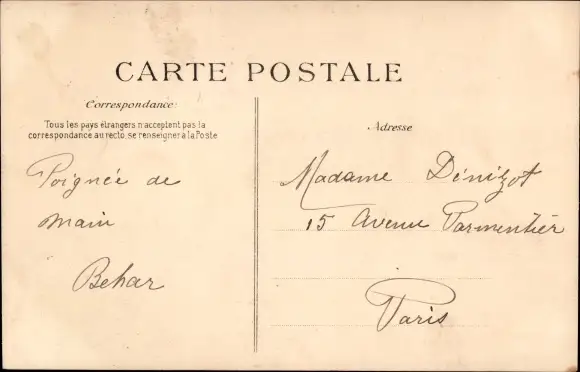 CARTE POSTALE
Correspondance
Tous les pays étrangers n'acceptent pas la
correspondance au recto, se renseigner à la Poste.
Poignée de
main
Behar
Adresse
Madame Dénizot
15 Avenue Parmentier
Paris